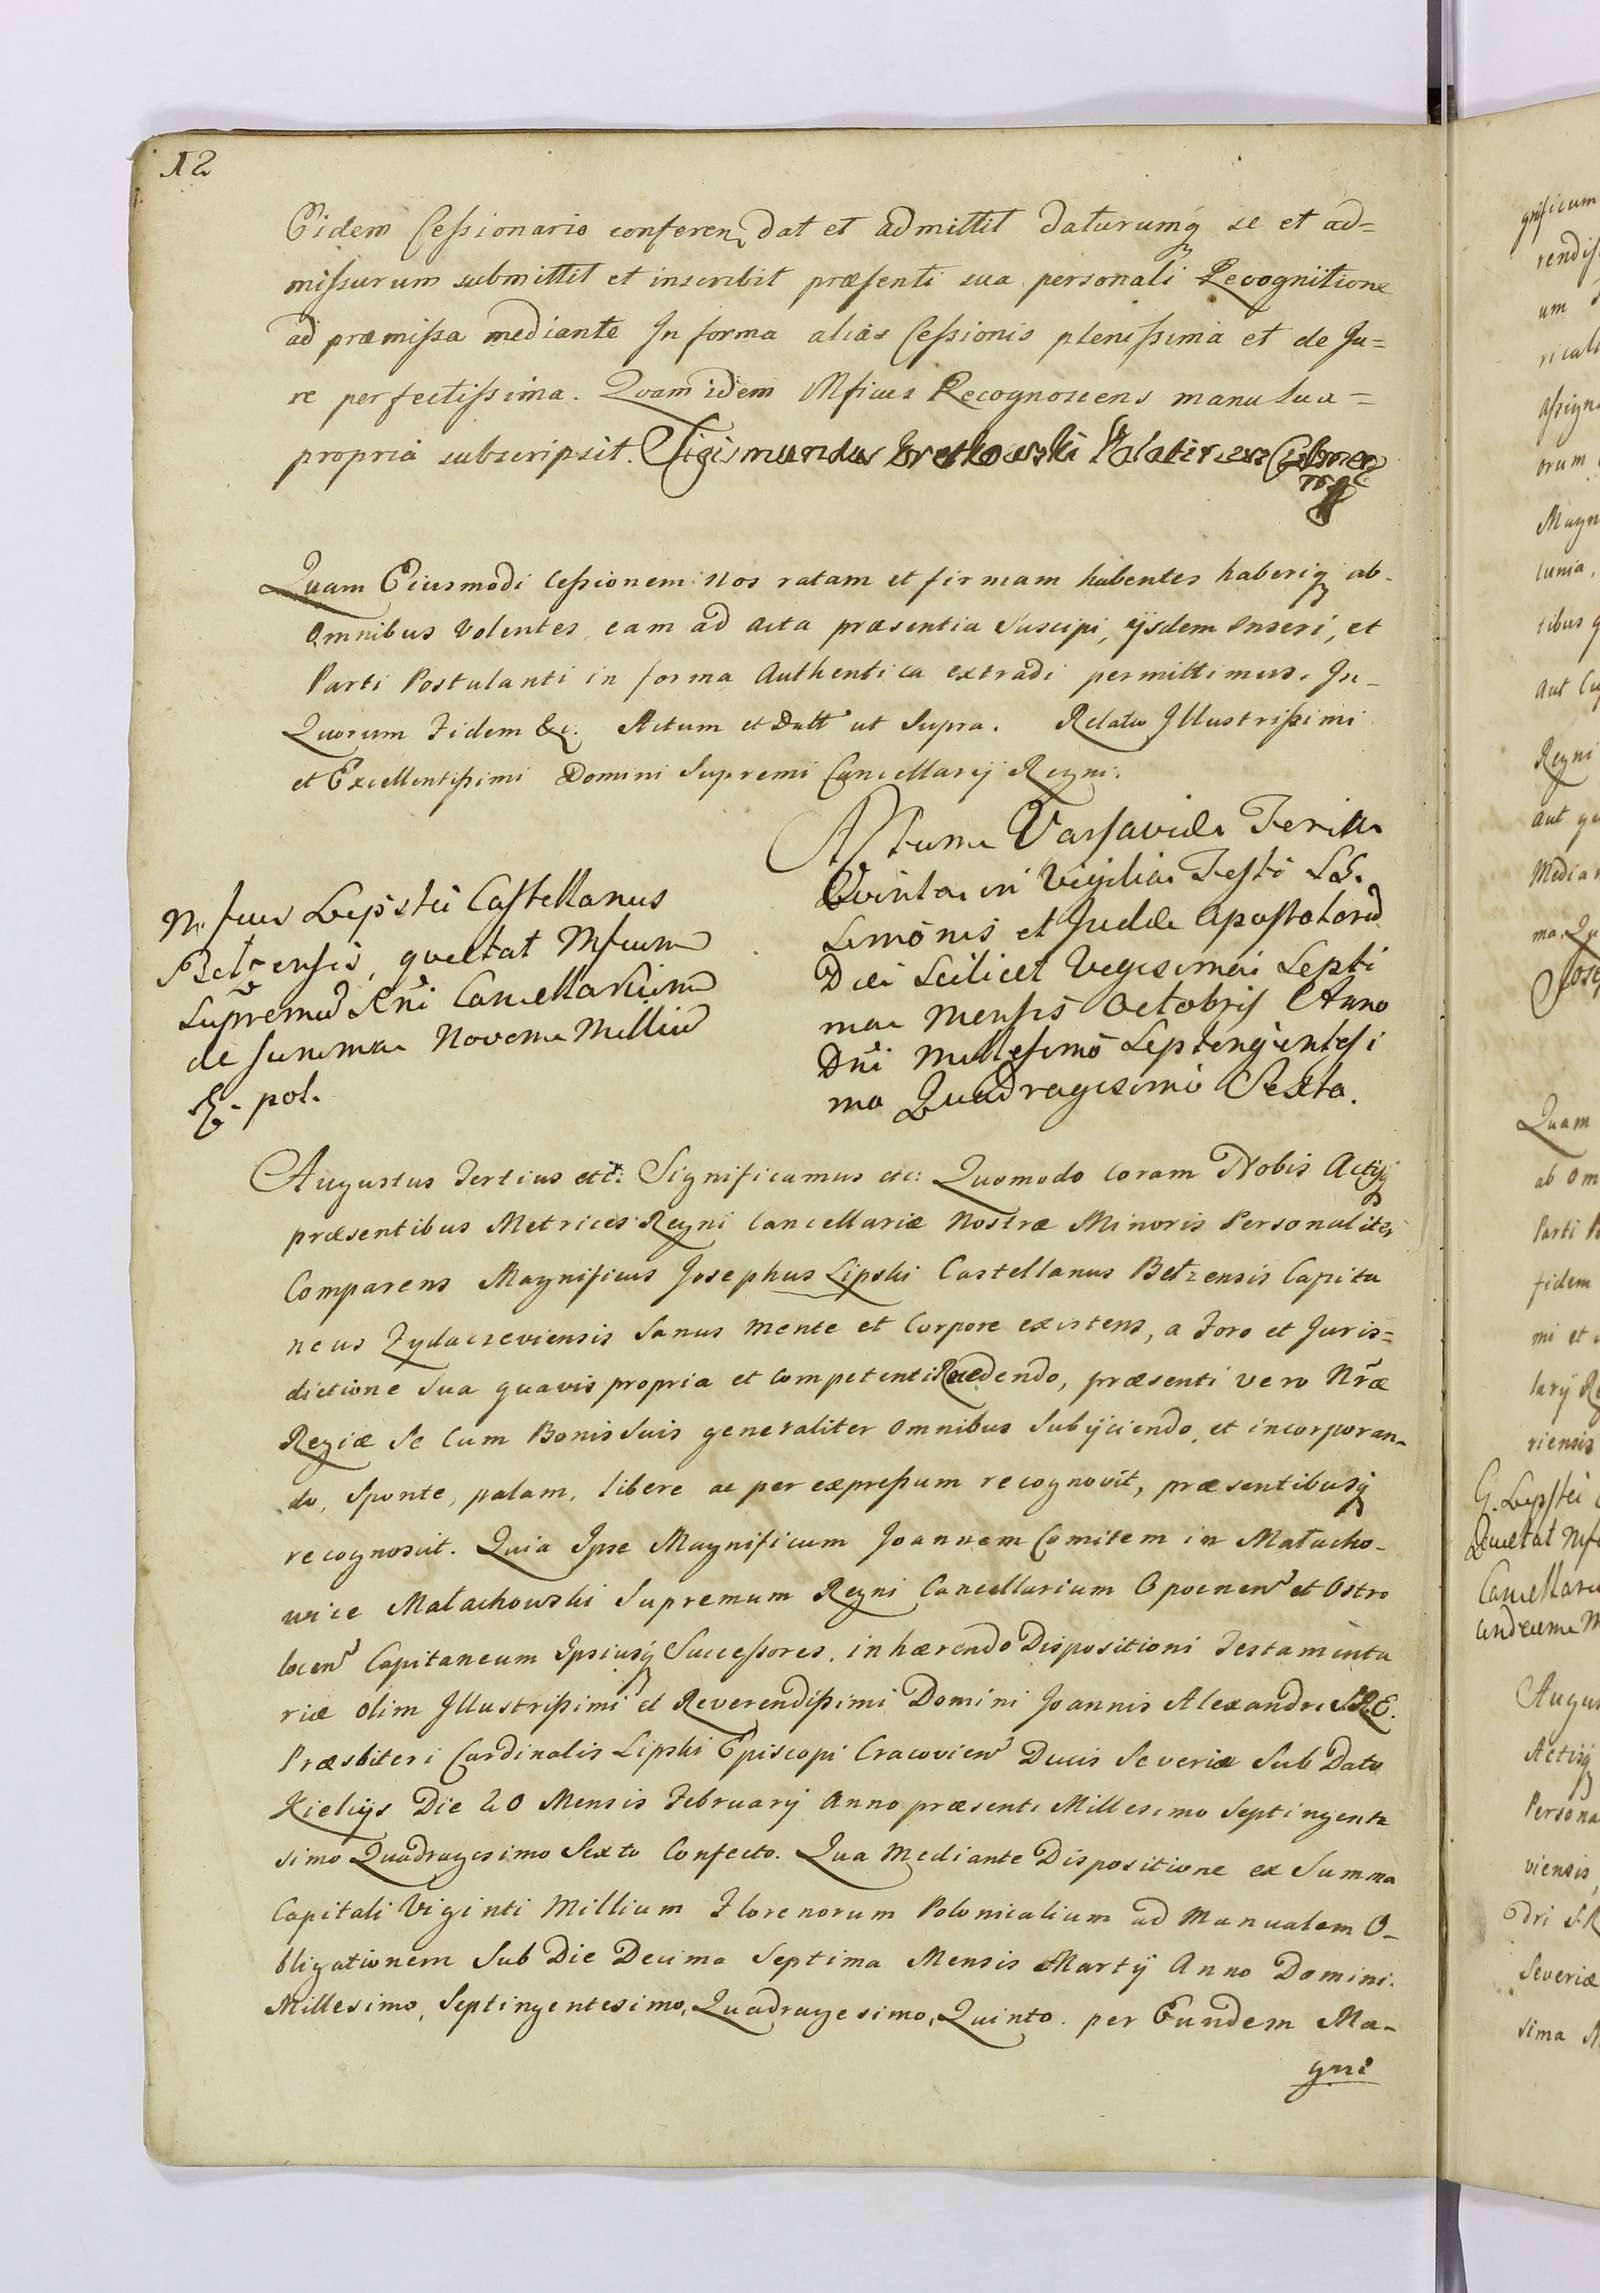 12
Eidem Cessionario conferen dat et admittit daturumq se et ad=
missurum submittit et inscribit præsenti sua personali Recognitione
ad præmissa mediante In forma alias Cessionis plenissima et de Ju=
re perfectissima. Quam idem Mficus Recognoscens manu sua=
propria subscripsit. Sigismundus Kretkowski Palatinus Culmen
mp
Quam Eiusmodi Cessionem Nos ratam et firmam habentes haberiq ab
omnibus Volentes, eam ad acta præsentia Suscipi, ijsdem Inseri, et
Parti Postulanti in forma Authentica extradi permittimus. In-
Quorum Fidem &c. Actum et Datt ut Supra. Relatio Illustrissimi
et Excellentissimi Domini Supremi Cancellarij Regni.
Mficus Lipski Castellanus
Belzensis, quietat Mficum
Supremu Rni Cancellarium
de summa Novem Milliu
fl. pol.
Actum Varsaviæ Feria
Quinta in Vigilia Festi SS.
Simonis et Judæ Apostoloru
Diei Scilicet Vigesima Septi
ma Mensis Octobris Anno
Dni Millesimo Septingentesi
mo Quadragesimo Sexto.
Augustus Tertius etc: Significamus etc: Quomodo Coram Nobis Actisq
præsentibus Metrices Regni Cancellariæ Nostræ Minoris Personaliter
Comparens Magnificus Josephus Lipski Castellanus Belzensis Capita
neus Zydaczeviensis Sanus Mente et Corpore existens, a Foro et Juris=
dictione Sua quavis propria et Competenti Recedendo, præsenti vero Nræ
Regiæ Se Cum Bonis Suis generaliter Omnibus Subijciendo et incorporan-
do, Sponte, palam, libere ac per expressum recognovit, præsentibusq
recognoscit. Quia Ipse Magnificum Joannem Comitem in Małacho-
wice Małachowski Supremum Regni Cancellarium Opocnen et Ostro
lecen Capitaneum Ipsiusq Successores, inhærendo Dispositioni Testamenta
riæ olim Illustrissimi et Reverendissimi Domini Joannis Alexandri S.R.E.
Præsbiteri Cardinalis Lipski Episcopi Cracovien Ducis Severiæ Sub Data
Kielijs Die 20 Mensis February Anno præsenti Millesimo Septingente
simo Quadragesimo Sexto Confecto. Qua Mediante Dispositione ex Summa
Capitali Viginti Millium Florenorum Polonicalium ad Manualem O-
bligationem Sub Die Decima Septima Mensis Martij Anno Domini.
Millesimo, Septingentesimo, Quadragesimo, Quinto. per Eundem Ma-
gni